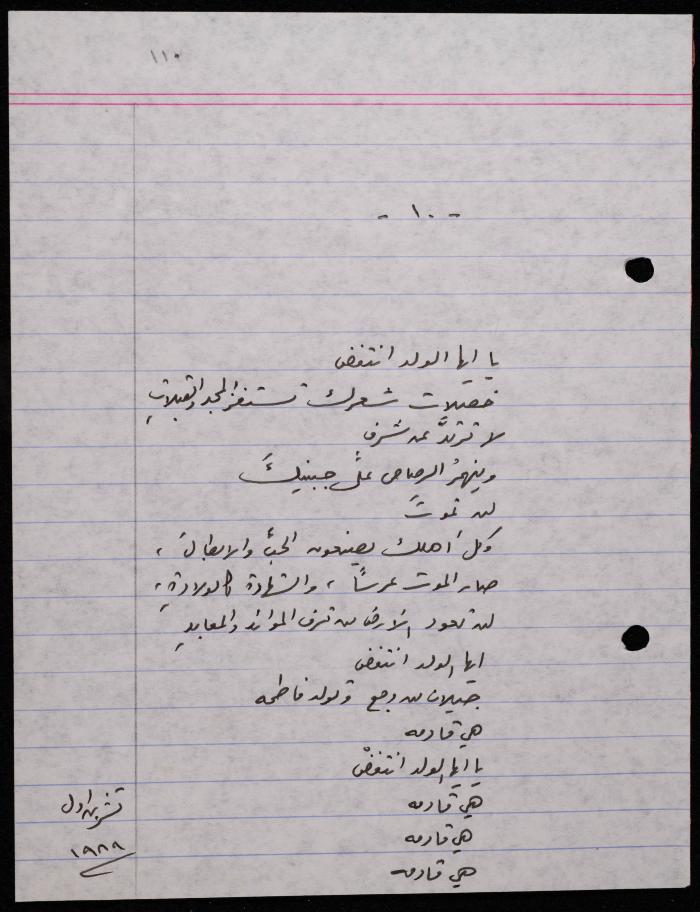 ١١٠
- ١٠ -
يا ايها الولد انتفض
خصيلات شعرك تستفز المجد والقبلاتِ
لا ترتدَّ عن شرف
وينهمرُ الرصاص على جبينيكَ
لن تموتَ
وكل أهلك يصنعون الحبَّ والابطالَ ،
صار الموت عرساً ، والشهادة كالولادةِ ،
لن تعود الأرض من ترف الموائد والمعابدِ
ايها الولد انتفض
جيلان من وجع وتولد فاطمه
هي قادمه
يا ايها الولد انتفضْ
هي قادمه
هي قادمه
هي قادمه
تشرين اول
١٩٨٨